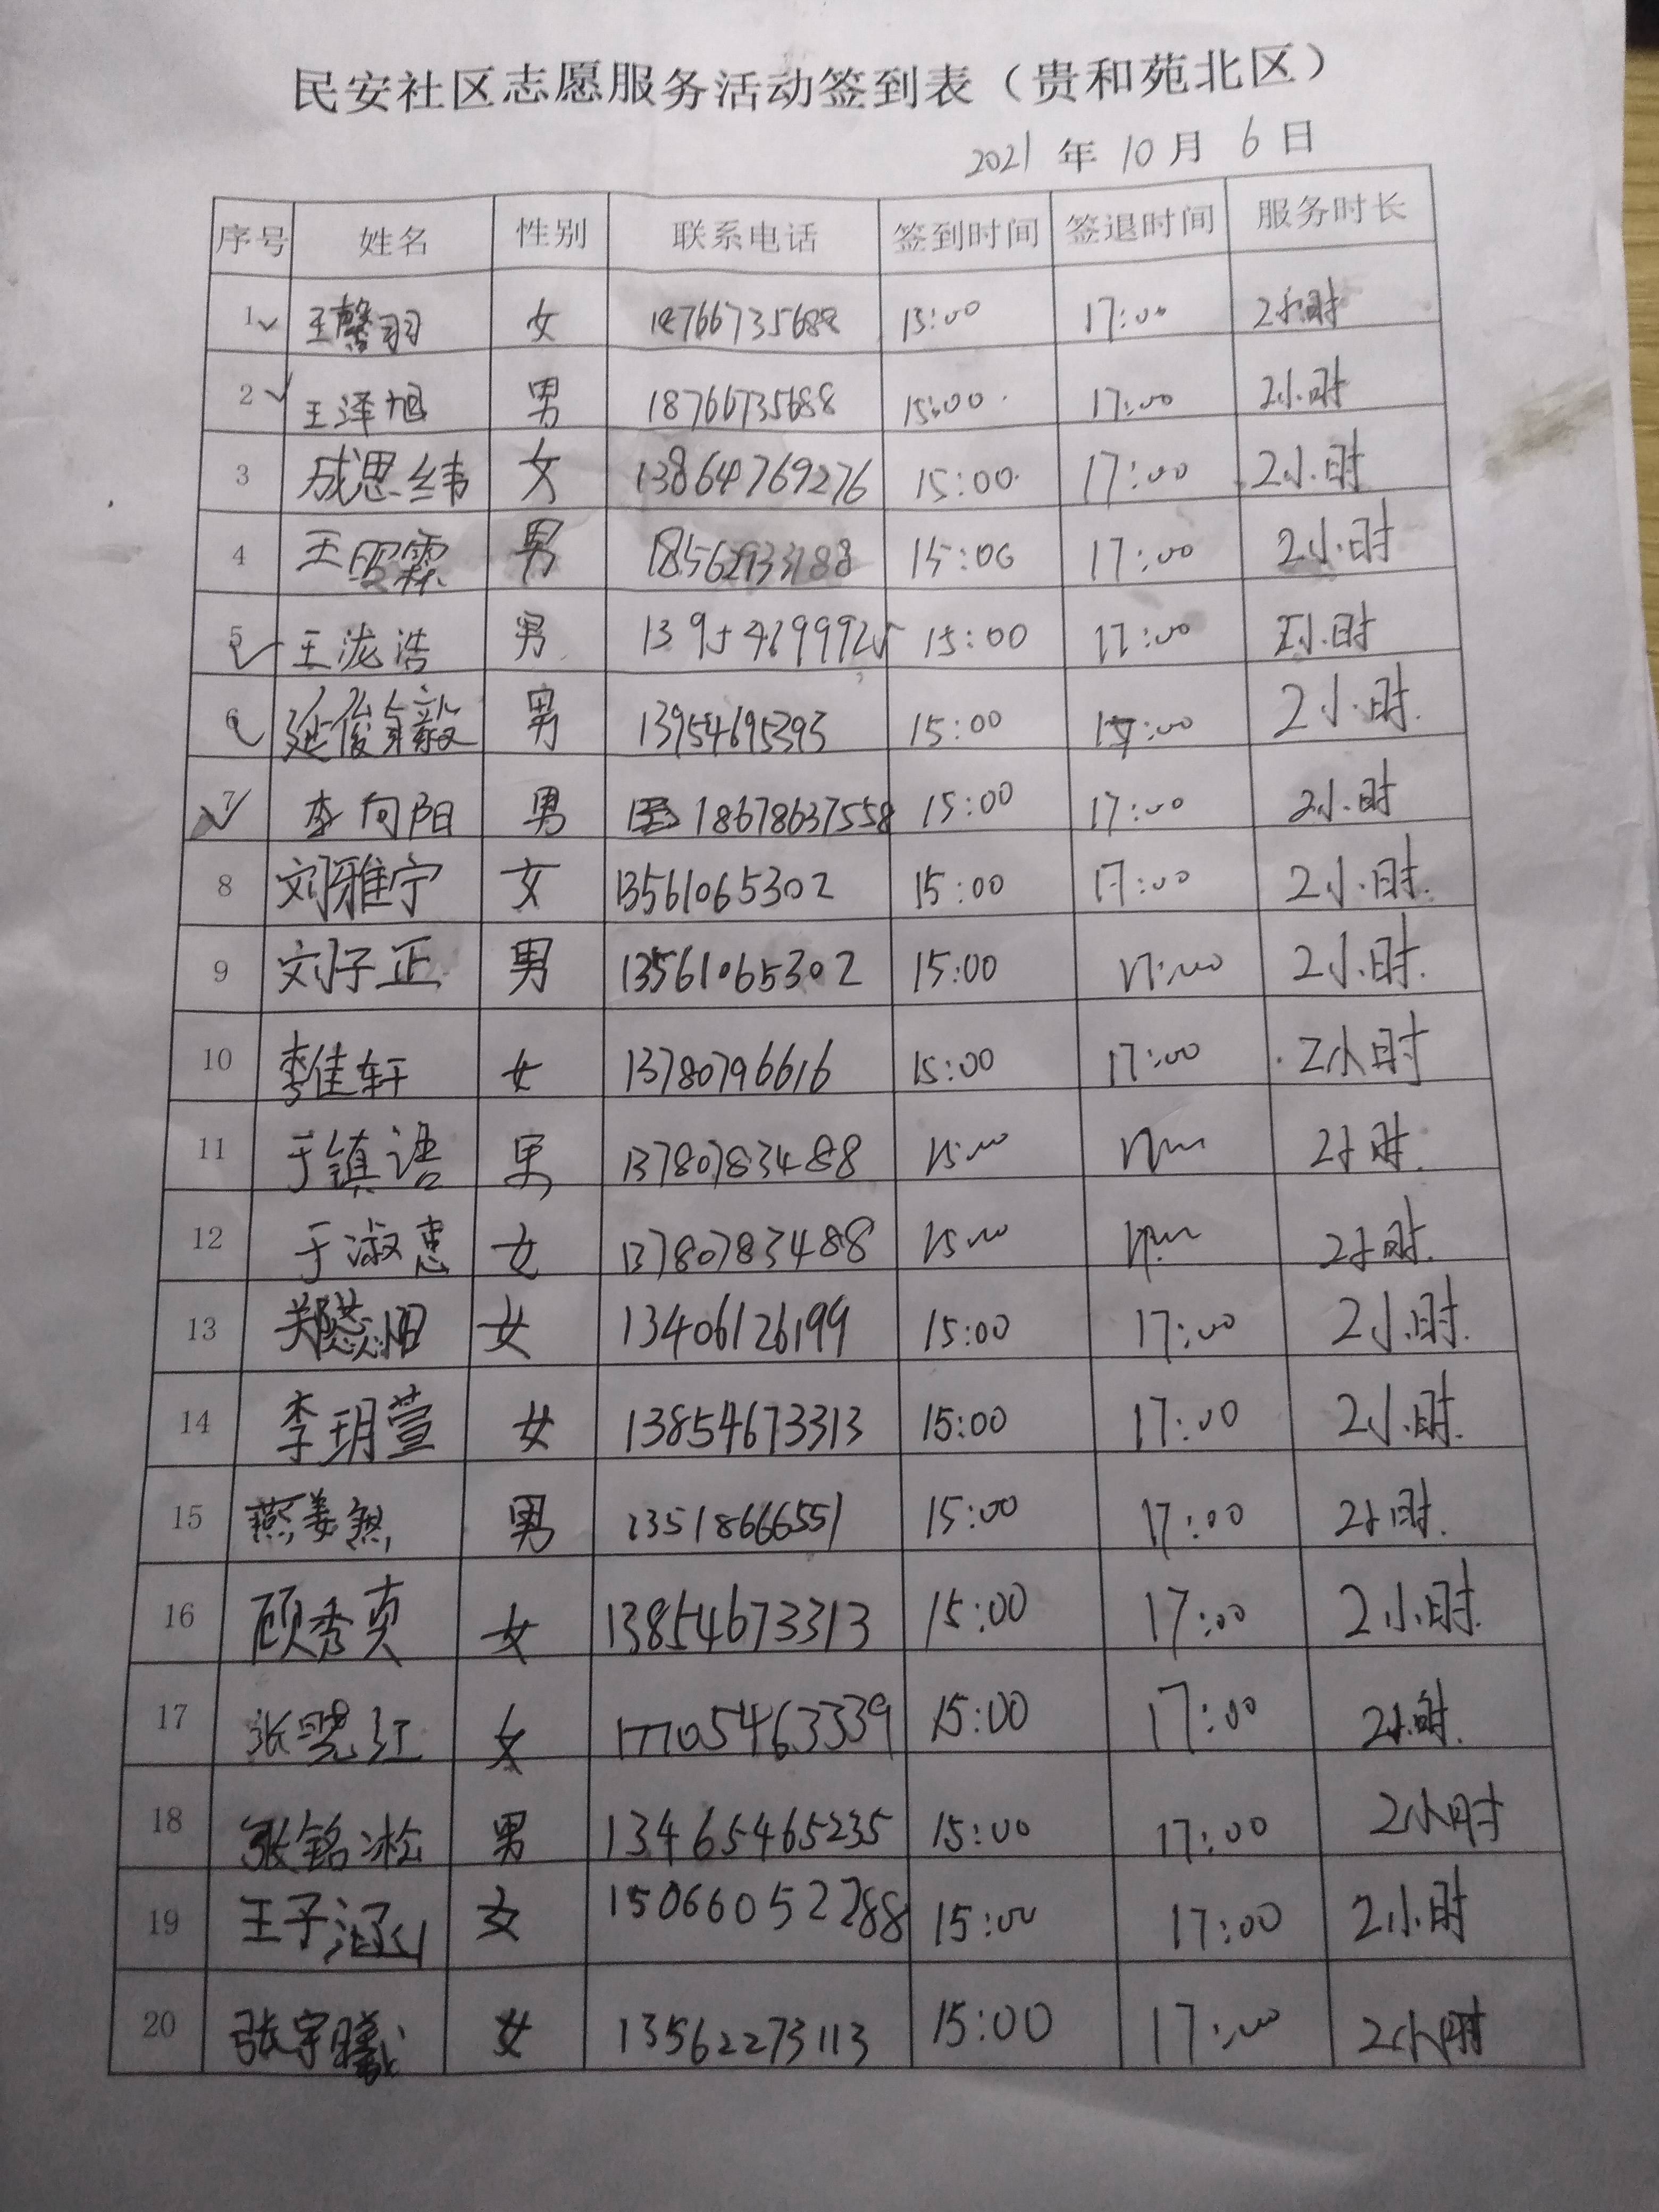 民安社区志愿服务活动签到表（贵和苑北区）
2021 年 10 月 6 日
序号 姓名 性别 联系电话 签到时间 签退时间 服务时长
1 王馨羽 女 18766735688 15:00 17:00 2小时
2 王泽旭 男 18766735688 15:00 17:00 2小时
3 成思纬 女 13864769276 15:00 17:00 2小时
4 王熙霖 男 15:00 17:00 2小时
5 王泷浩 男 15:00 17:00 2小时
6 延俊毅 男 13954695393 15:00 17:00 2小时
7 李向阳 男 18678637558 15:00 17:00 2小时
8 刘雅宁 女 13561065302 15:00 17:00 2小时
9 刘子正 男 13561065302 15:00 17:00 2小时
10 李佳轩 女 13780796616 15:00 17:00 2小时
11 于镇语 男 13780783488 15:00 17:00 2小时
12 于淑惠 女 13780783488 15:00 17:00 2小时
13 女 13406126199 15:00 17:00 2小时
14 李玥萱 女 13854673313 15:00 17:00 2小时
15 燕姜煦 男 13518666551 15:00 17:00 2小时
16 顾秀真 女 13854673313 15:00 17:00 2小时
17 张晓红 女 17705463339 15:00 17:00 2小时
18 张铭淞 男 13465465235 15:00 17:00 2小时
19 王子涵 女 15066052788 15:00 17:00 2小时
20 张宇曦 女 13562273113 15:00 17:00 2小时